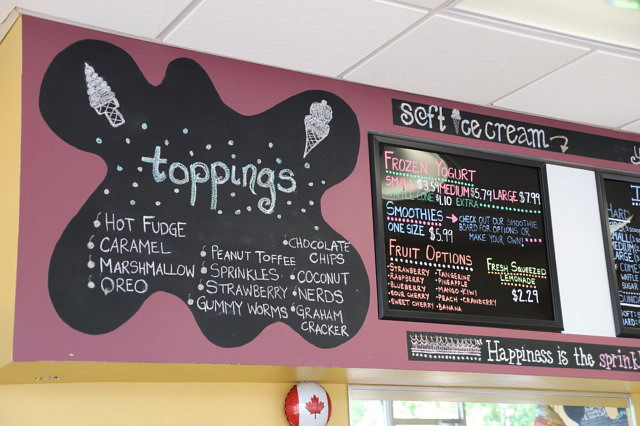 toppings
HOT FUDGE
CARAMEL
MARSHMALLOW
OREO
PEANUT TOFFEE
SPRINKLES
STRAWBERRY
GUMMY WORMS
CHOCOLATE
CHIPS
COCONUT
NERDS
GRAHAM
CRACKER
soft ice cream
FROZEN YOGURT
SMALL $3.59 MEDIUM $5.79 LARGE $7.99
$1.10 EXTRA
SMOOTHIES
ONE SIZE $5.99
CHECK OUT OUR SMOOTHIE
BOARD FOR OPTIONS OR
MAKE YOUR OWN!
FRUIT OPTIONS
STRAWBERRY
RASPBERRY
BLUEBERRY
SOUR CHERRY
SWEET CHERRY
TANGERINE
PINEAPPLE
MANGO KIWI
PEACH CRANBERRY
BANANA
FRESH SQUEEZED
LEMONADE
$2.29
HARD
HAPPINESS IS THE sprink